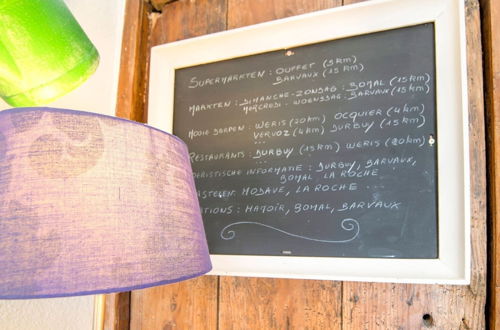 SUPERMARKTEN : OUFFET (5km)
BARVAUX (15km)
MARKTEN : DIMANCHE-ZONSAG : BOMAL (15km)
MERCREDI - WOENSSAG : BARVAUX (15km)
MOOIE DORPEN : WERIS (20km) OCQUIER (4km)
VERVOZ (4km) DURBUY (15km)
...
RESTAURANTS : DURBUY (15km) WERIS (20km)
...
ERISTISCHE INFORMATIE : DURBUY, BARVAUX,
BOMAL LA ROCHE
ASTELEN: MODAVE, LA ROCHE ...
ATIONS : HAMOIR, BOMAL, BARVAUX